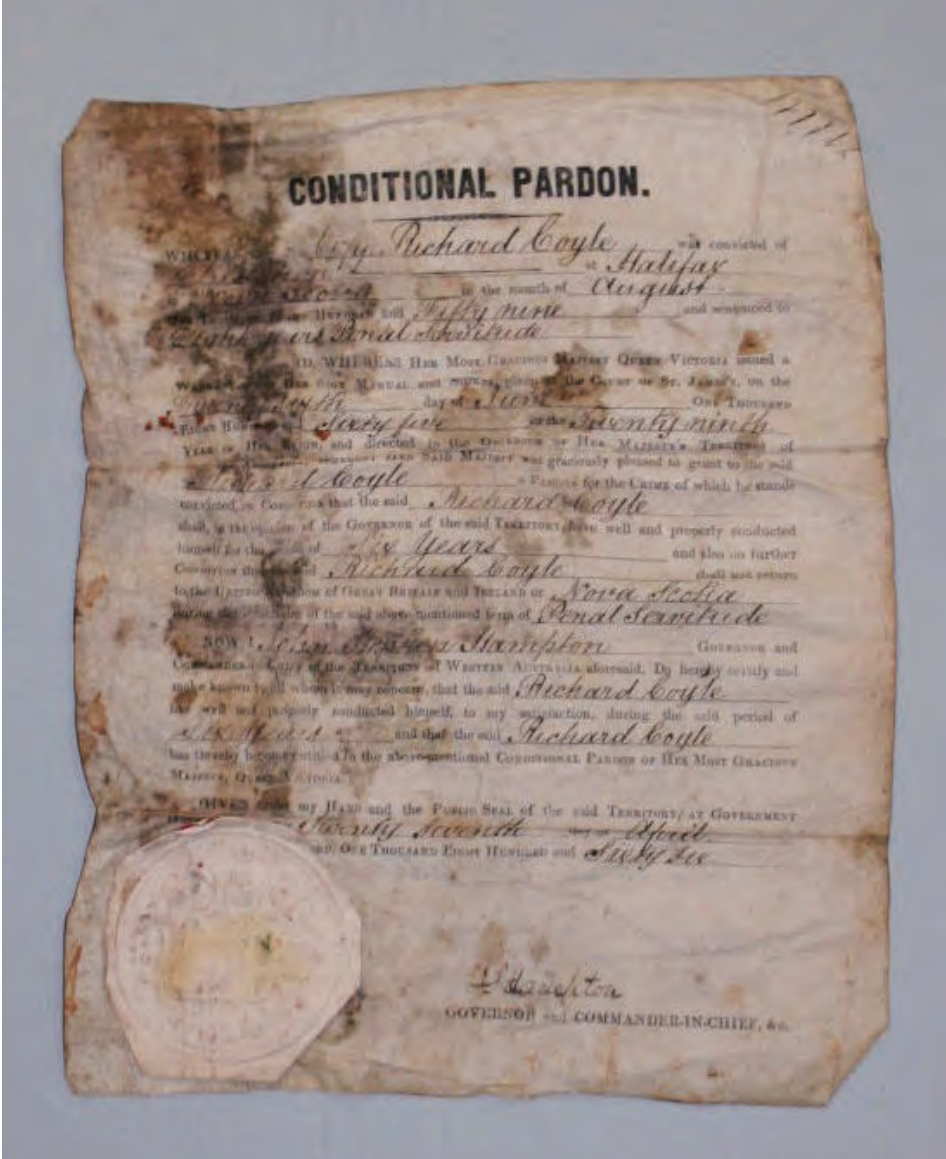 CONDITIONAL PARDON.
Richard Coyle was convicted of
at Halifax
in the month of August
and Fifty nine and sentenced to
Penal Servitude
WHEREAS HER MOST GRACIOUS MAJESTY QUEEN VICTORIA issued a
HER SIGN MANUAL and at the COURT OF ST. JAMES'S, on the
day of June ONE THOUSAND
EIGHT Sixty five in the Twenty ninth
YEAR OF HER REIGN, and directed to the GOVERNOR OF HER MAJESTY'S TERRITORY of
SAID MAJESTY was graciously pleased to grant to the said
Coyle a PARDON for the CRIME of which he stands
convicted, on CONDITION that the said Richard Coyle
shall, in the opinion of the GOVERNOR of the said TERRITORY, have well and properly conducted
himself for the of Six Years and also on further
CONDITION Richard Coyle shall not return
to the UNITED KINGDOM OF GREAT BRITAIN AND IRELAND OR Nova Scotia
during the of the said above-mentioned term of Penal Servitude
NOW I Hampton GOVERNOR and
COMMANDER-in-CHIEF of the TERRITORY of WESTERN AUSTRALIA aforesaid, Do hereby certify and
make known to all whom it may concern, that the said Richard Coyle
well and properly conducted himself, to my satisfaction, during the said period of
Six Years and that the said Richard Coyle
has thereby become entitled to the above-mentioned CONDITIONAL PARDON OF HER MOST GRACIOUS
MAJESTY, QUEEN VICTORIA.
GIVEN under my HAND and the PUBLIC SEAL of the said TERRITORY, AT GOVERNMENT
Twenty seventh day of April
ONE THOUSAND EIGHT HUNDRED and Sixty six
Hampton
GOVERNOR and COMMANDER-IN-CHIEF, &c.